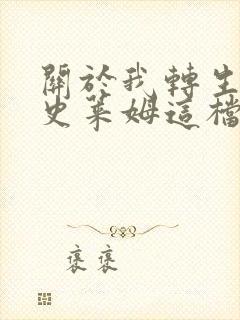 關於我轉生
史萊姆這檔
褒褒